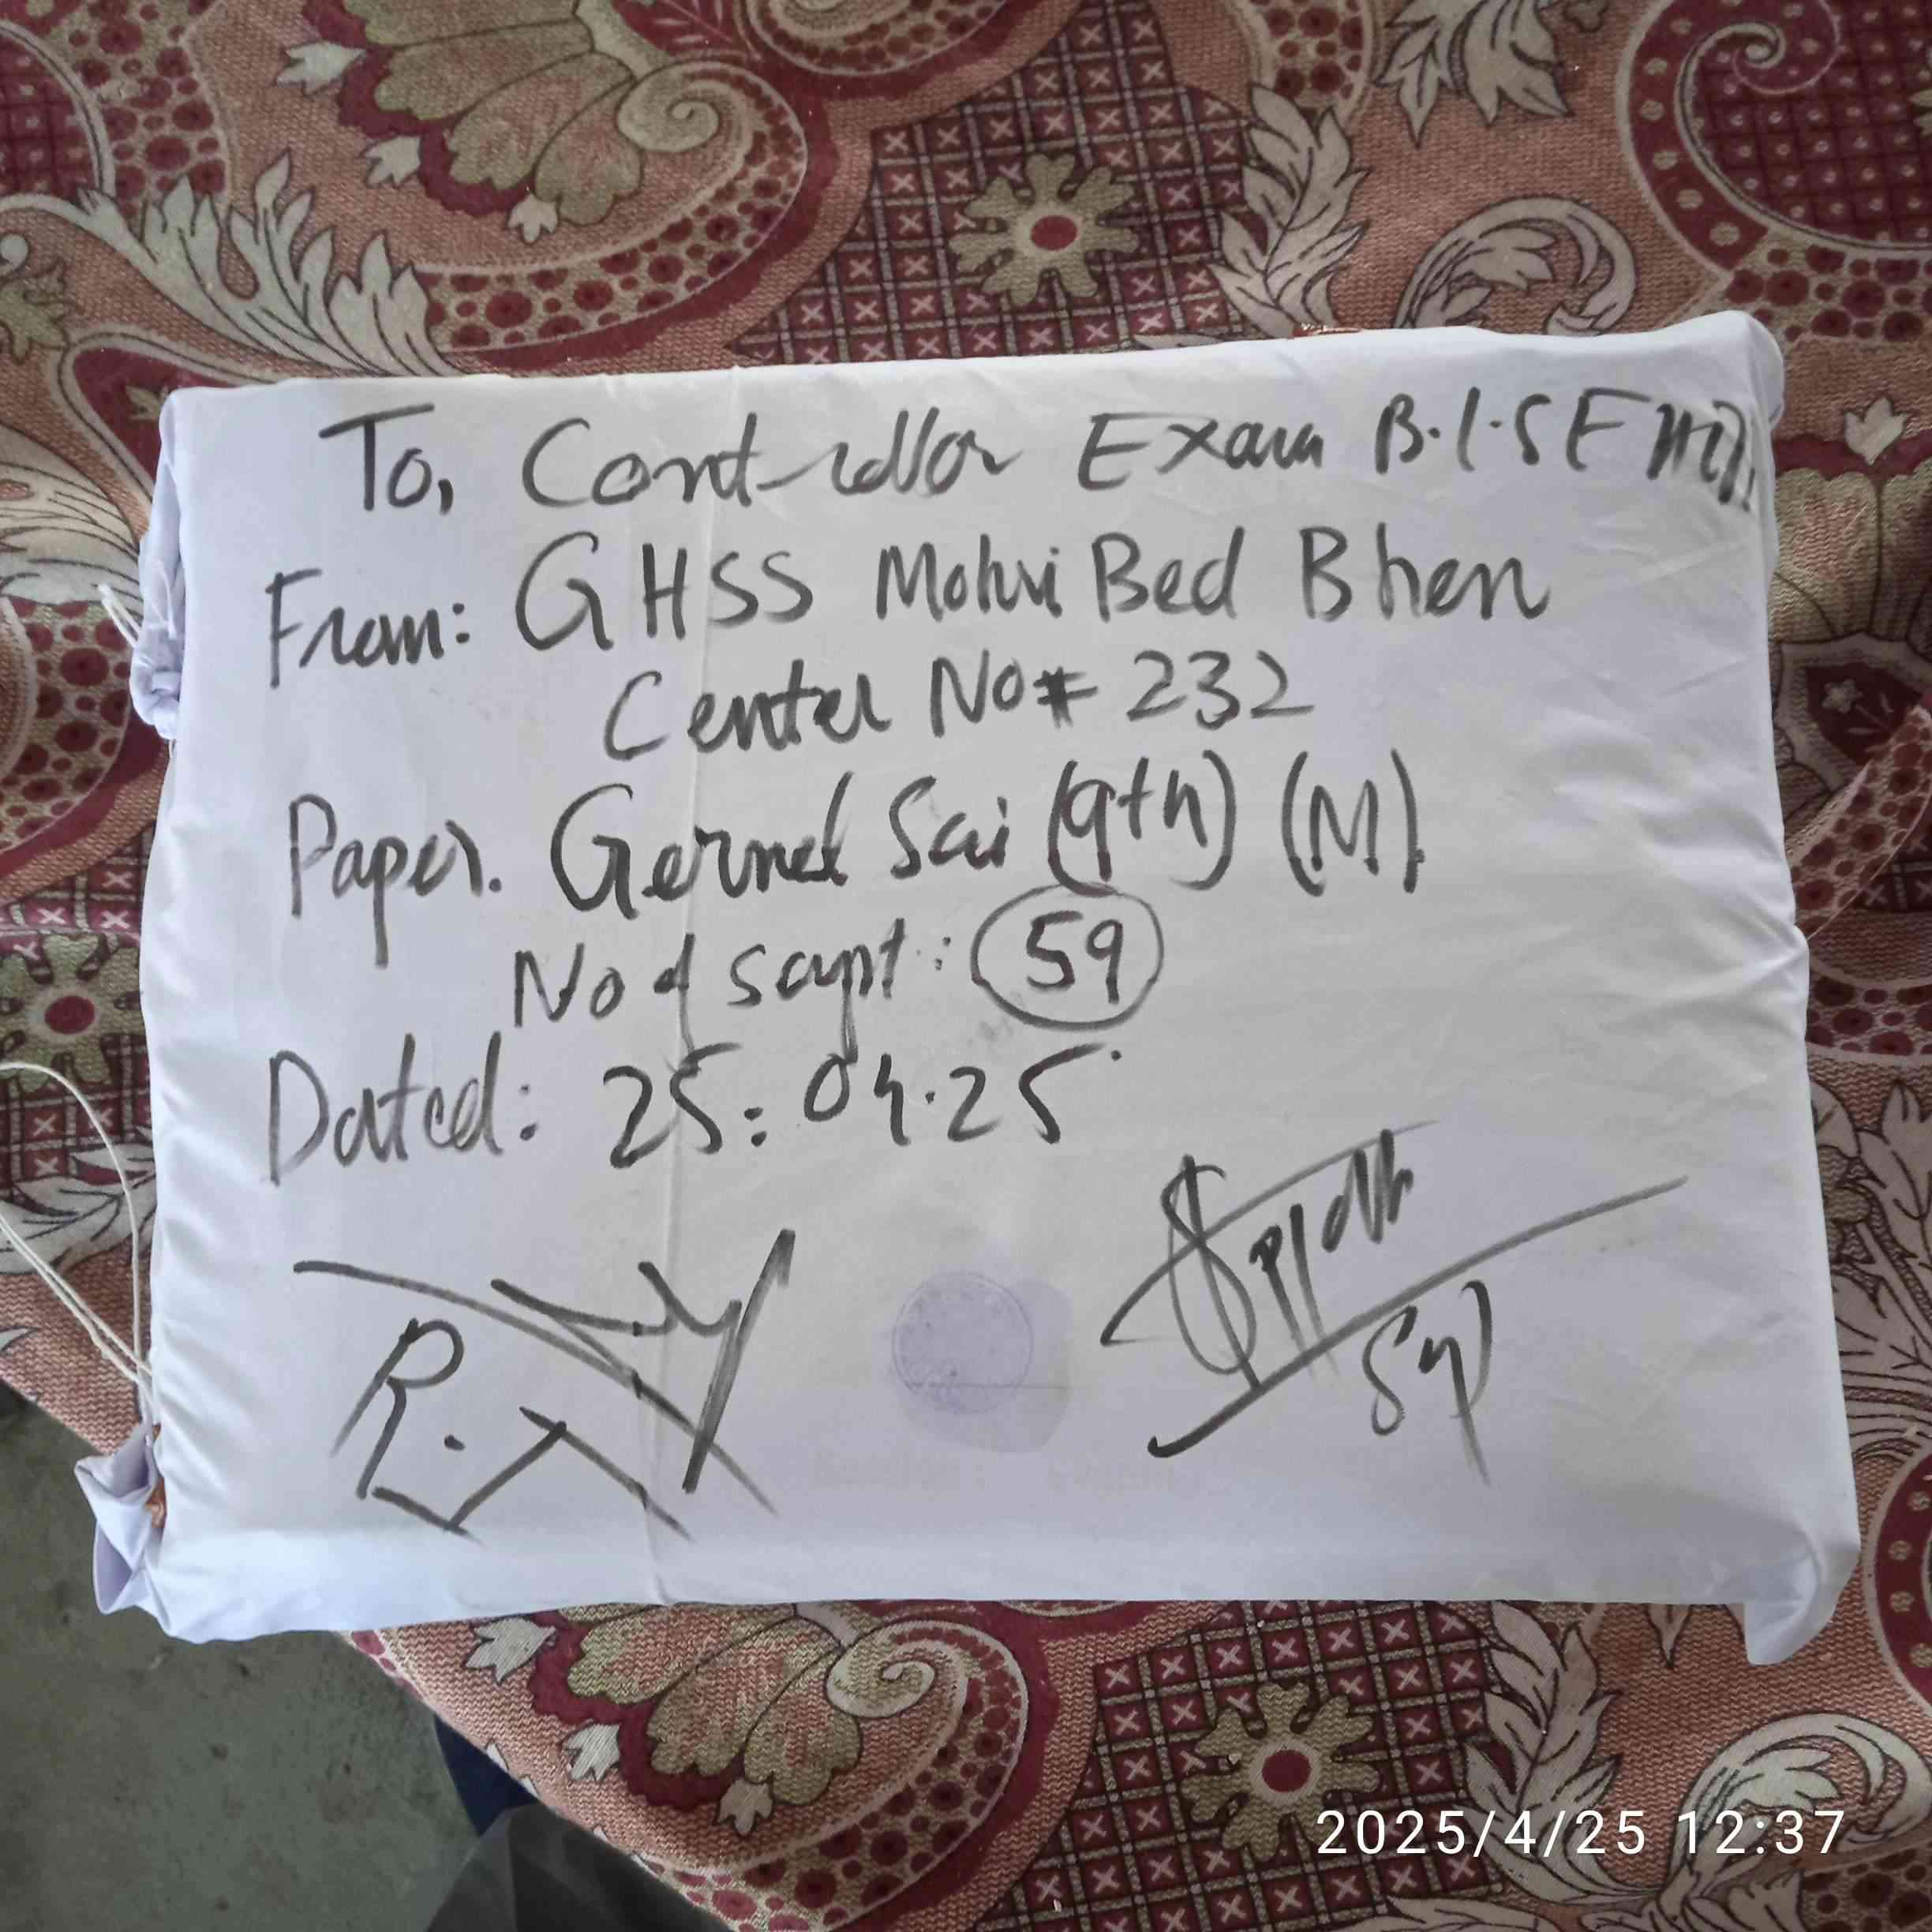 To, Controllor Exam B.I.S.E
From: GHSS Mohri Bed Bhen
Center No# 232
Paper. Gernel Sci (9th) (M)
No of script: 59
Dated: 25:04.25
R.I
Supdt
2025/4/25 12:37